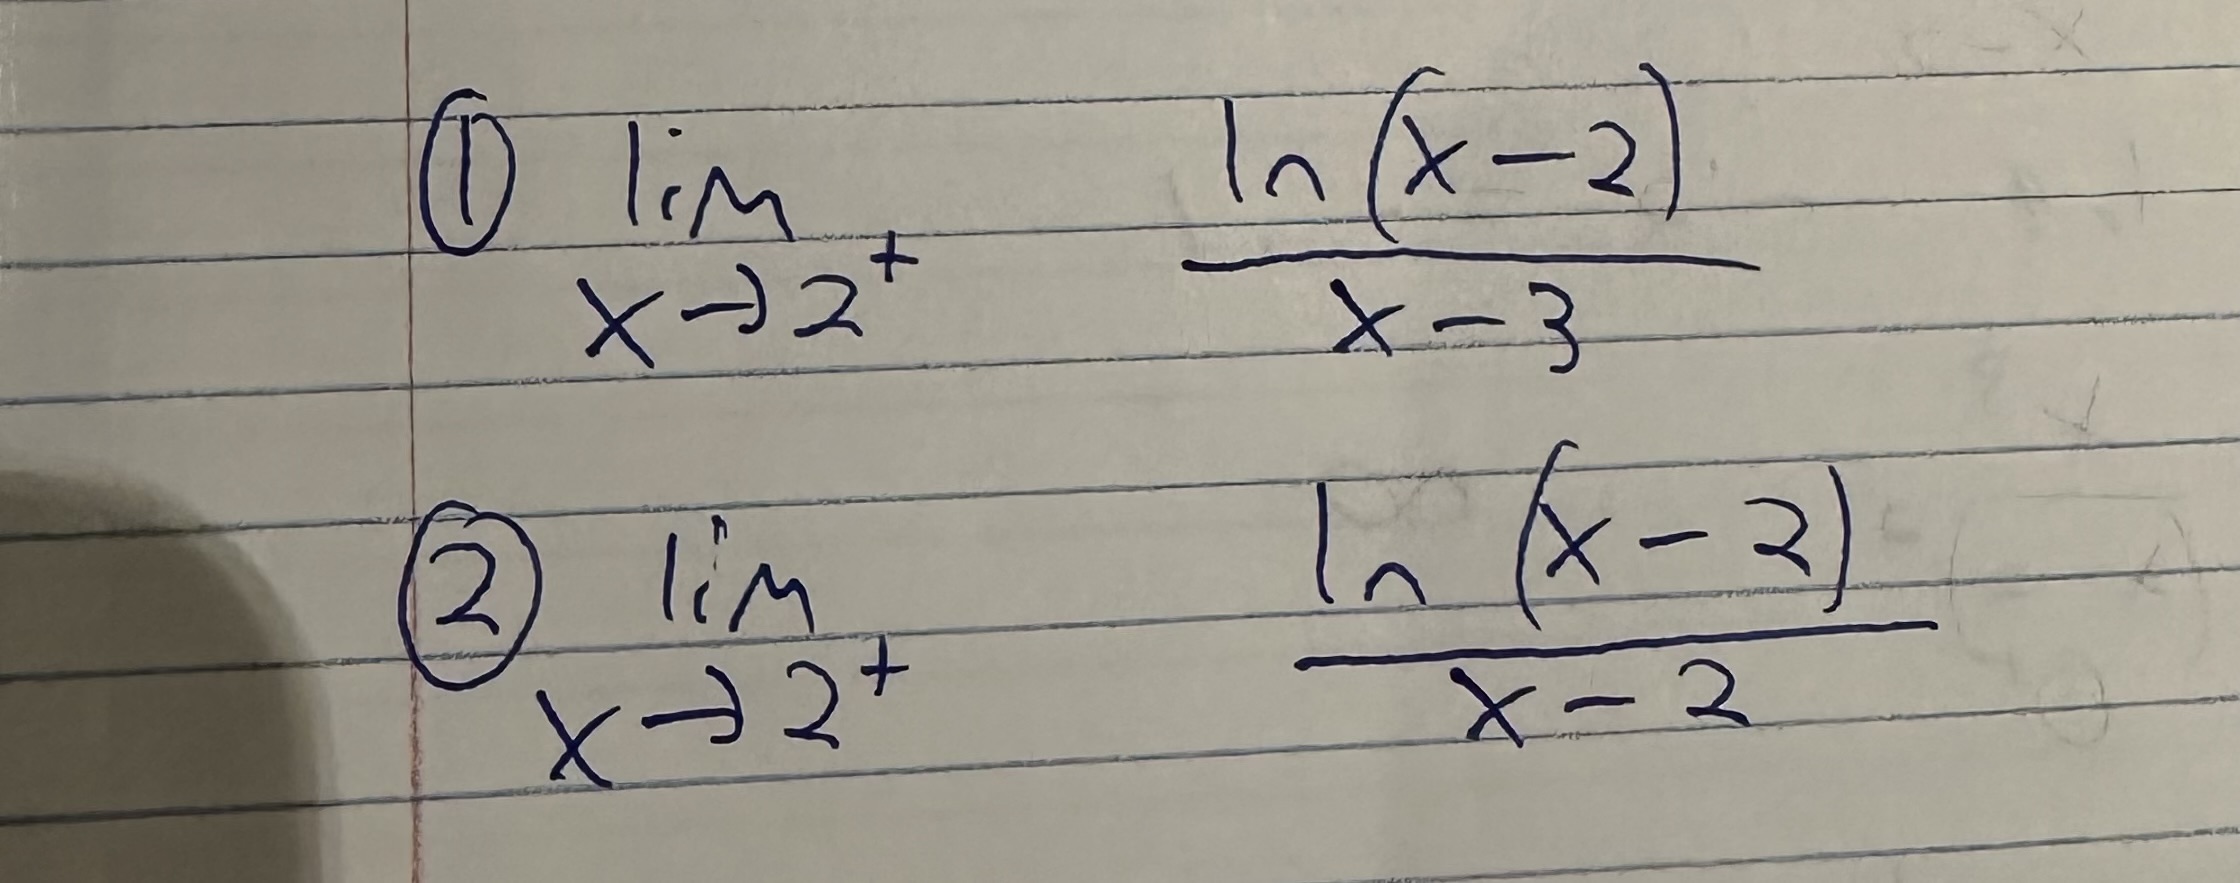 ① lim x→2⁺ ln(x-2)/x-3
② lim x→2⁺ ln(x-2)/x-2